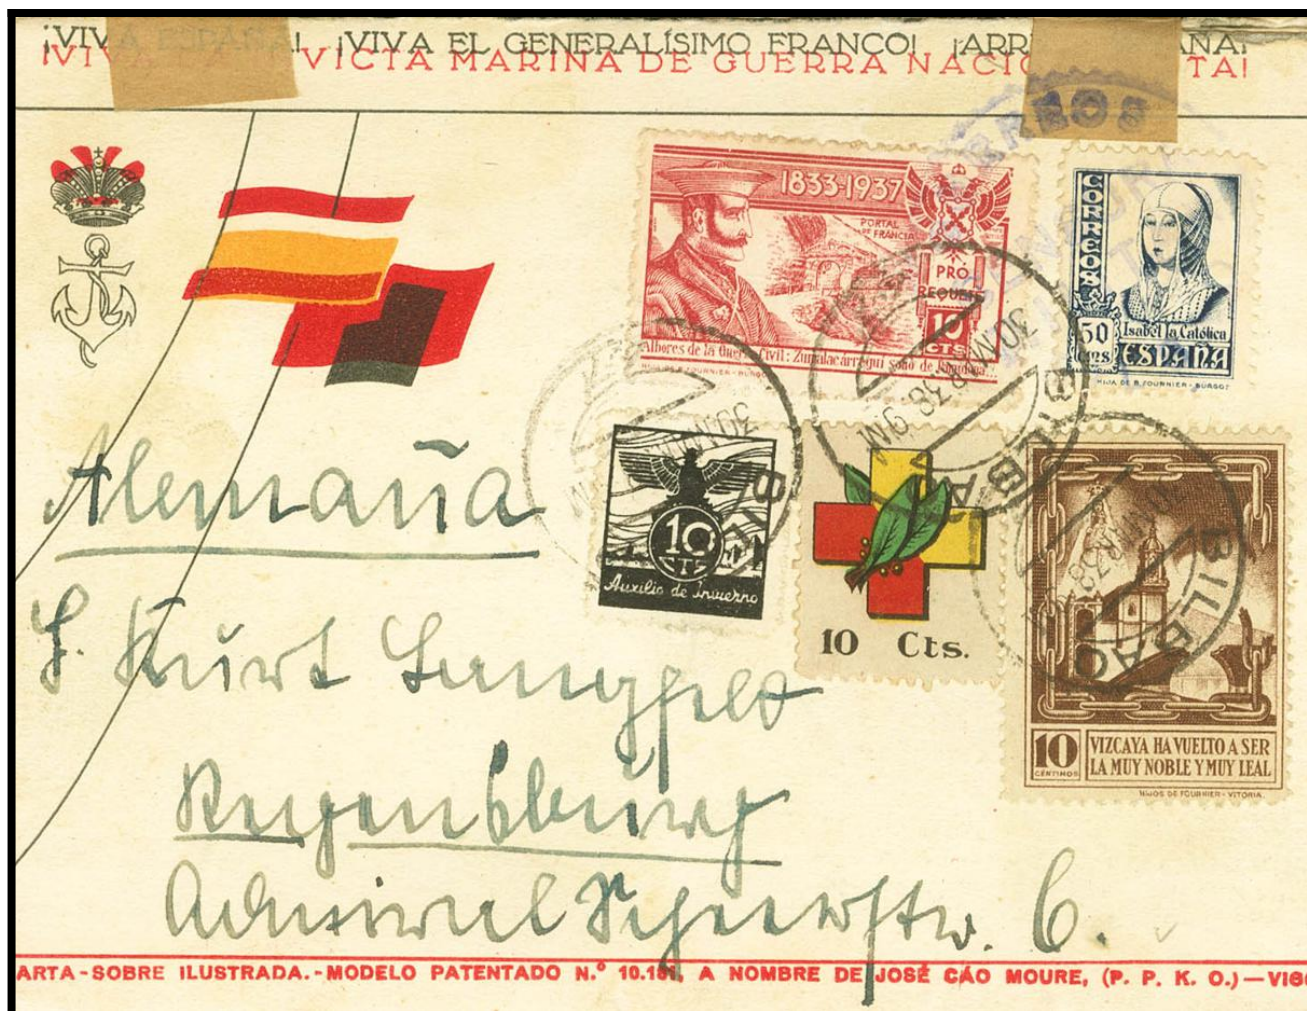 ¡VIVA ESPAÑA! ¡VIVA EL GENERALÍSIMO FRANCO! ¡ARR AÑA!
¡VIV VICTA MARINA DE GUERRA NACIO TA!
CORREOS
1833-1937
PORTAL
DE FRANCIA
PRÓ
REQUETÉ
10
CTS
Albores de la Guerra Civil: Zumalacárregui soñó de
HIJOS DE B. FOURNIER - BURGOS
CORREOS
50
cms
Isabel la Católica
ESPAÑA
HIJA DE B. FOURNIER - BURGOS
30 MAR 38. 9M
BILBAO
30 MAR
BIL
10
CTS
Auxilio de Invierno
10 Cts.
MAR 38
BILBAO
10
CENTIMOS
VIZCAYA HA VUELTO A SER
LA MUY NOBLE Y MUY LEAL
HIJOS DE FOURNIER - VITORIA.
Alemaña
Kurt Langfeld
Regensburg
Admiral Scheerstr. 6.
ARTA-SOBRE ILUSTRADA.-MODELO PATENTADO N.º 10.181, A NOMBRE DE JOSÉ CÁO MOURE, (P. P. K. O.)—VIGO